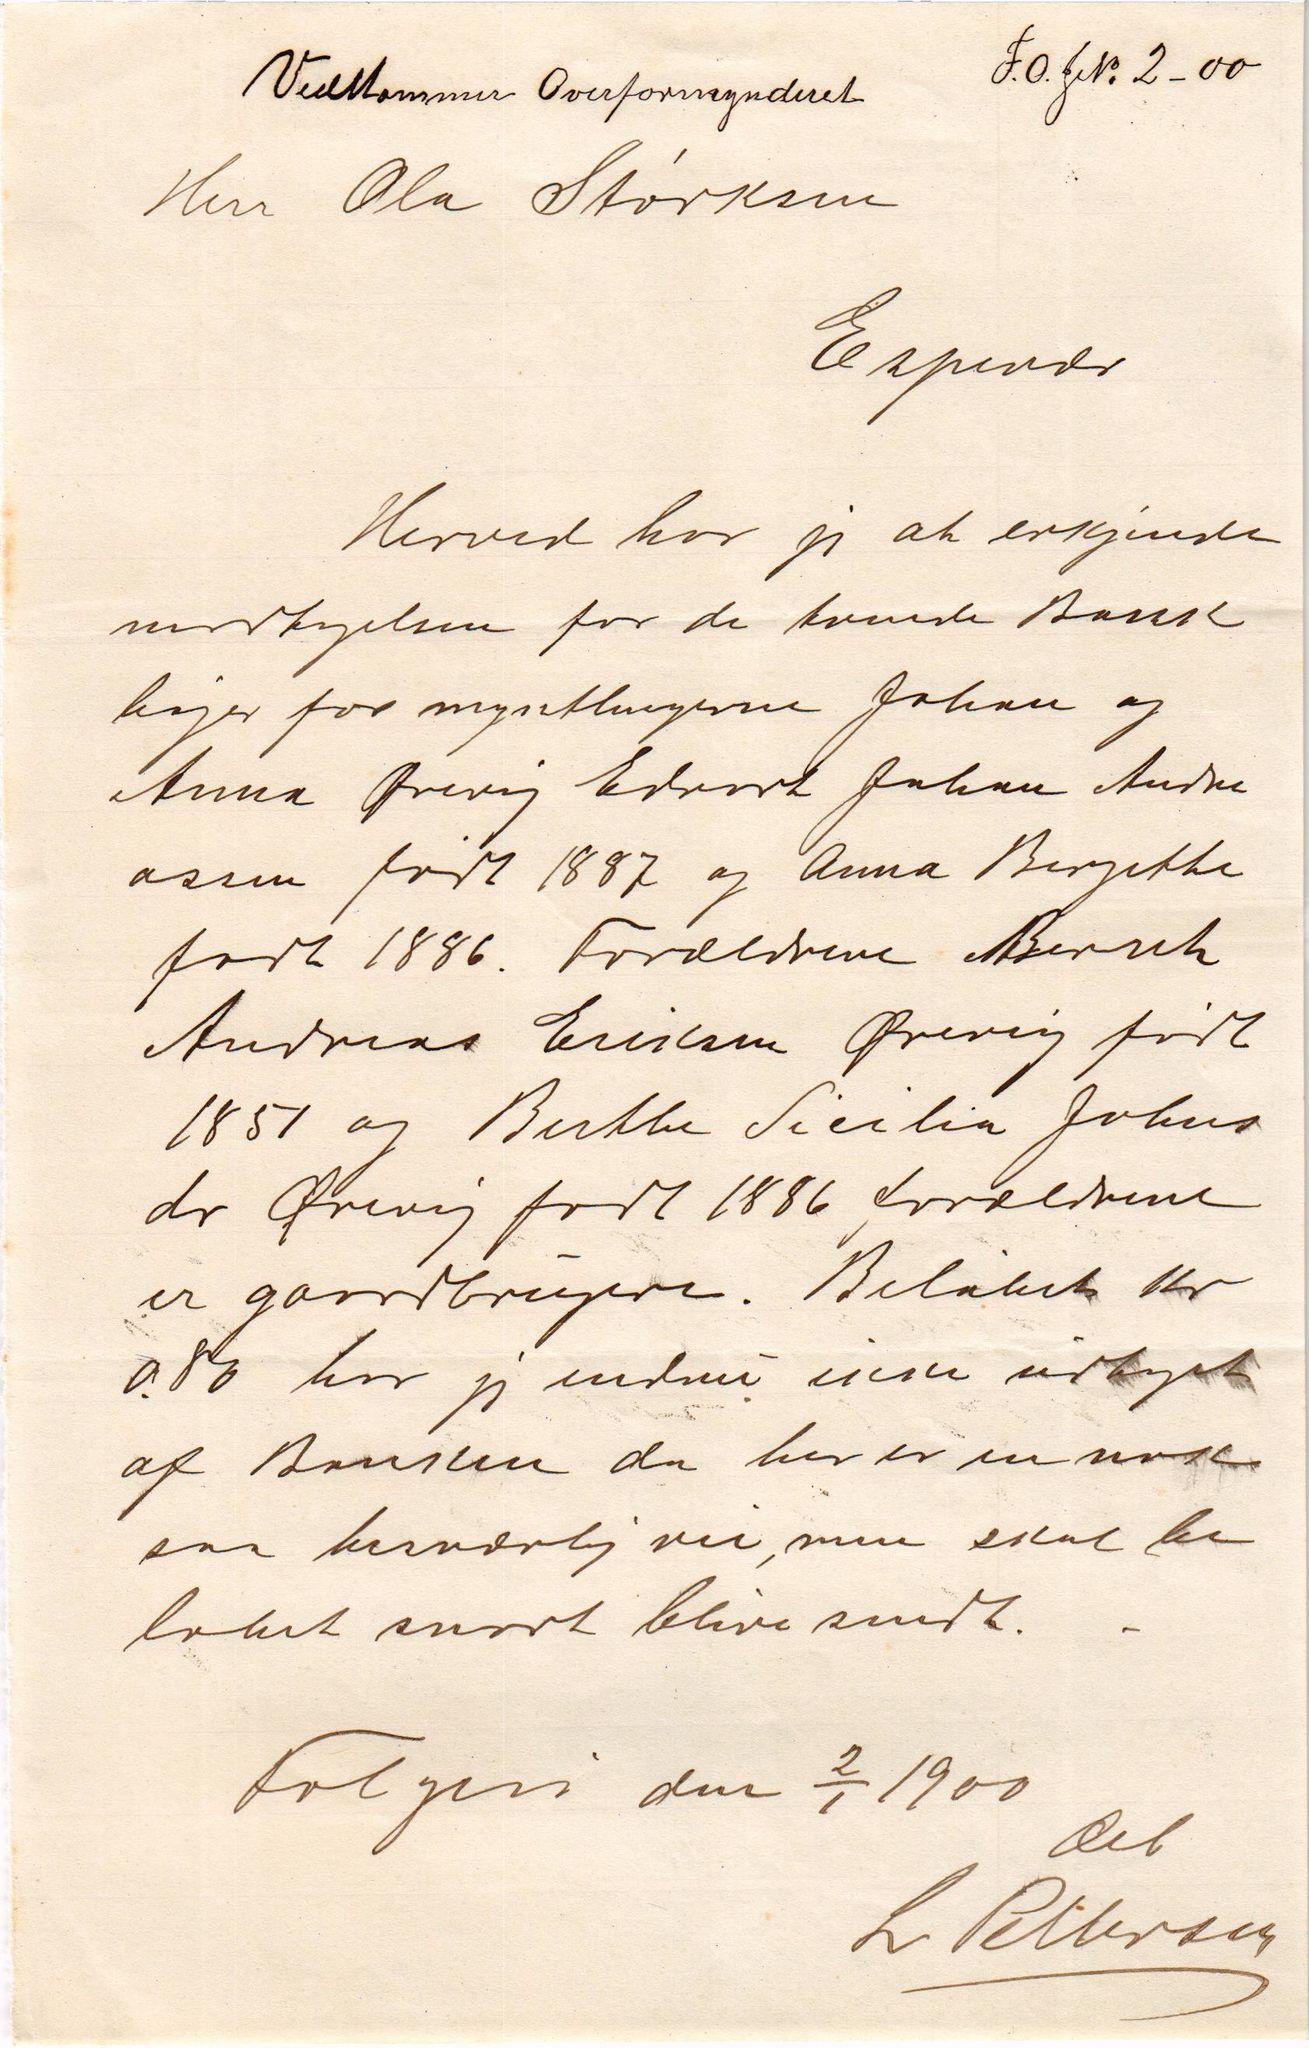 Vedkommer Overformynderet
F.O. JNo. 2-00
Herr Ola Størksen
Espevær
Herved har jeg at erkjende
modtagelsen for de tvende Bank
bøger for myndtlingerne Johan og
Anna Ørevig Edvart Johan Andre
assen født 1887 og Anna Bergitte
født 1886. Forældrene Bernt
Andreas Eriksen Ørevig født
1851 og Berthe Sicilia Johns
dr Ørevig født 1886 forældrene
er gaardbrugere. Beløbet Kr
0.80 har jeg endnu ikke udtaget
af Banken da her er en nok
saa besværlig vei, men skal be
løbet snart blive sendt. -
Følgerø den 2/1 1900
Ærb
L Pettersen